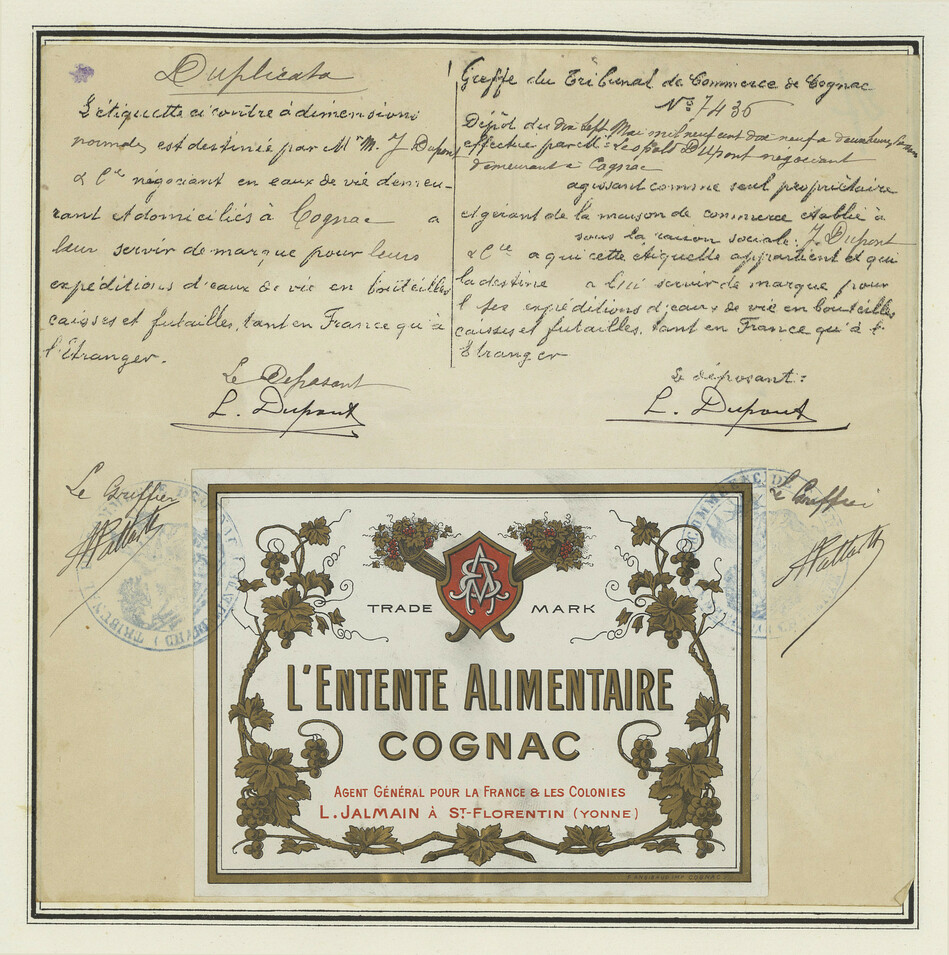 Duplicata
L'étiquette ci contre à dimensions
normales est destinée par M^rs M. J Dupont
& C^ie négociant en eaux de vie demeu-
rant et domiciliés à Cognac a
leur servir de marque pour leurs
expéditions d'eaux de vie en bouteilles
caisses et futailles, tant en France qu'à
l'Etranger.
Le Déposant
L. Dupont
Greffe du Tribunal de Commerce de Cognac
N° 7436
Dépôt du dix sept Mai mil neuf cent dix neuf a deux heures
effectué par M^r Léopold Dupont négociant
demeurant à Cognac
agissant comme seul propriétaire
et gérant de la maison de commerce établie à
sous la raison sociale: J. Dupont
& C^ie a qui cette étiquette appartient et qui
la destine a lui servir de marque pour
ses expéditions d'eaux de vie en bouteilles
caisses et futailles, tant en France qu'à l'
Etranger
Le déposant:
L. Dupont
Le Greffier
Le Greffier
TRADE MARK
L'ENTENTE ALIMENTAIRE
COGNAC
AGENT GÉNÉRAL POUR LA FRANCE & LES COLONIES
L. JALMAIN À ST-FLORENTIN (YONNE)